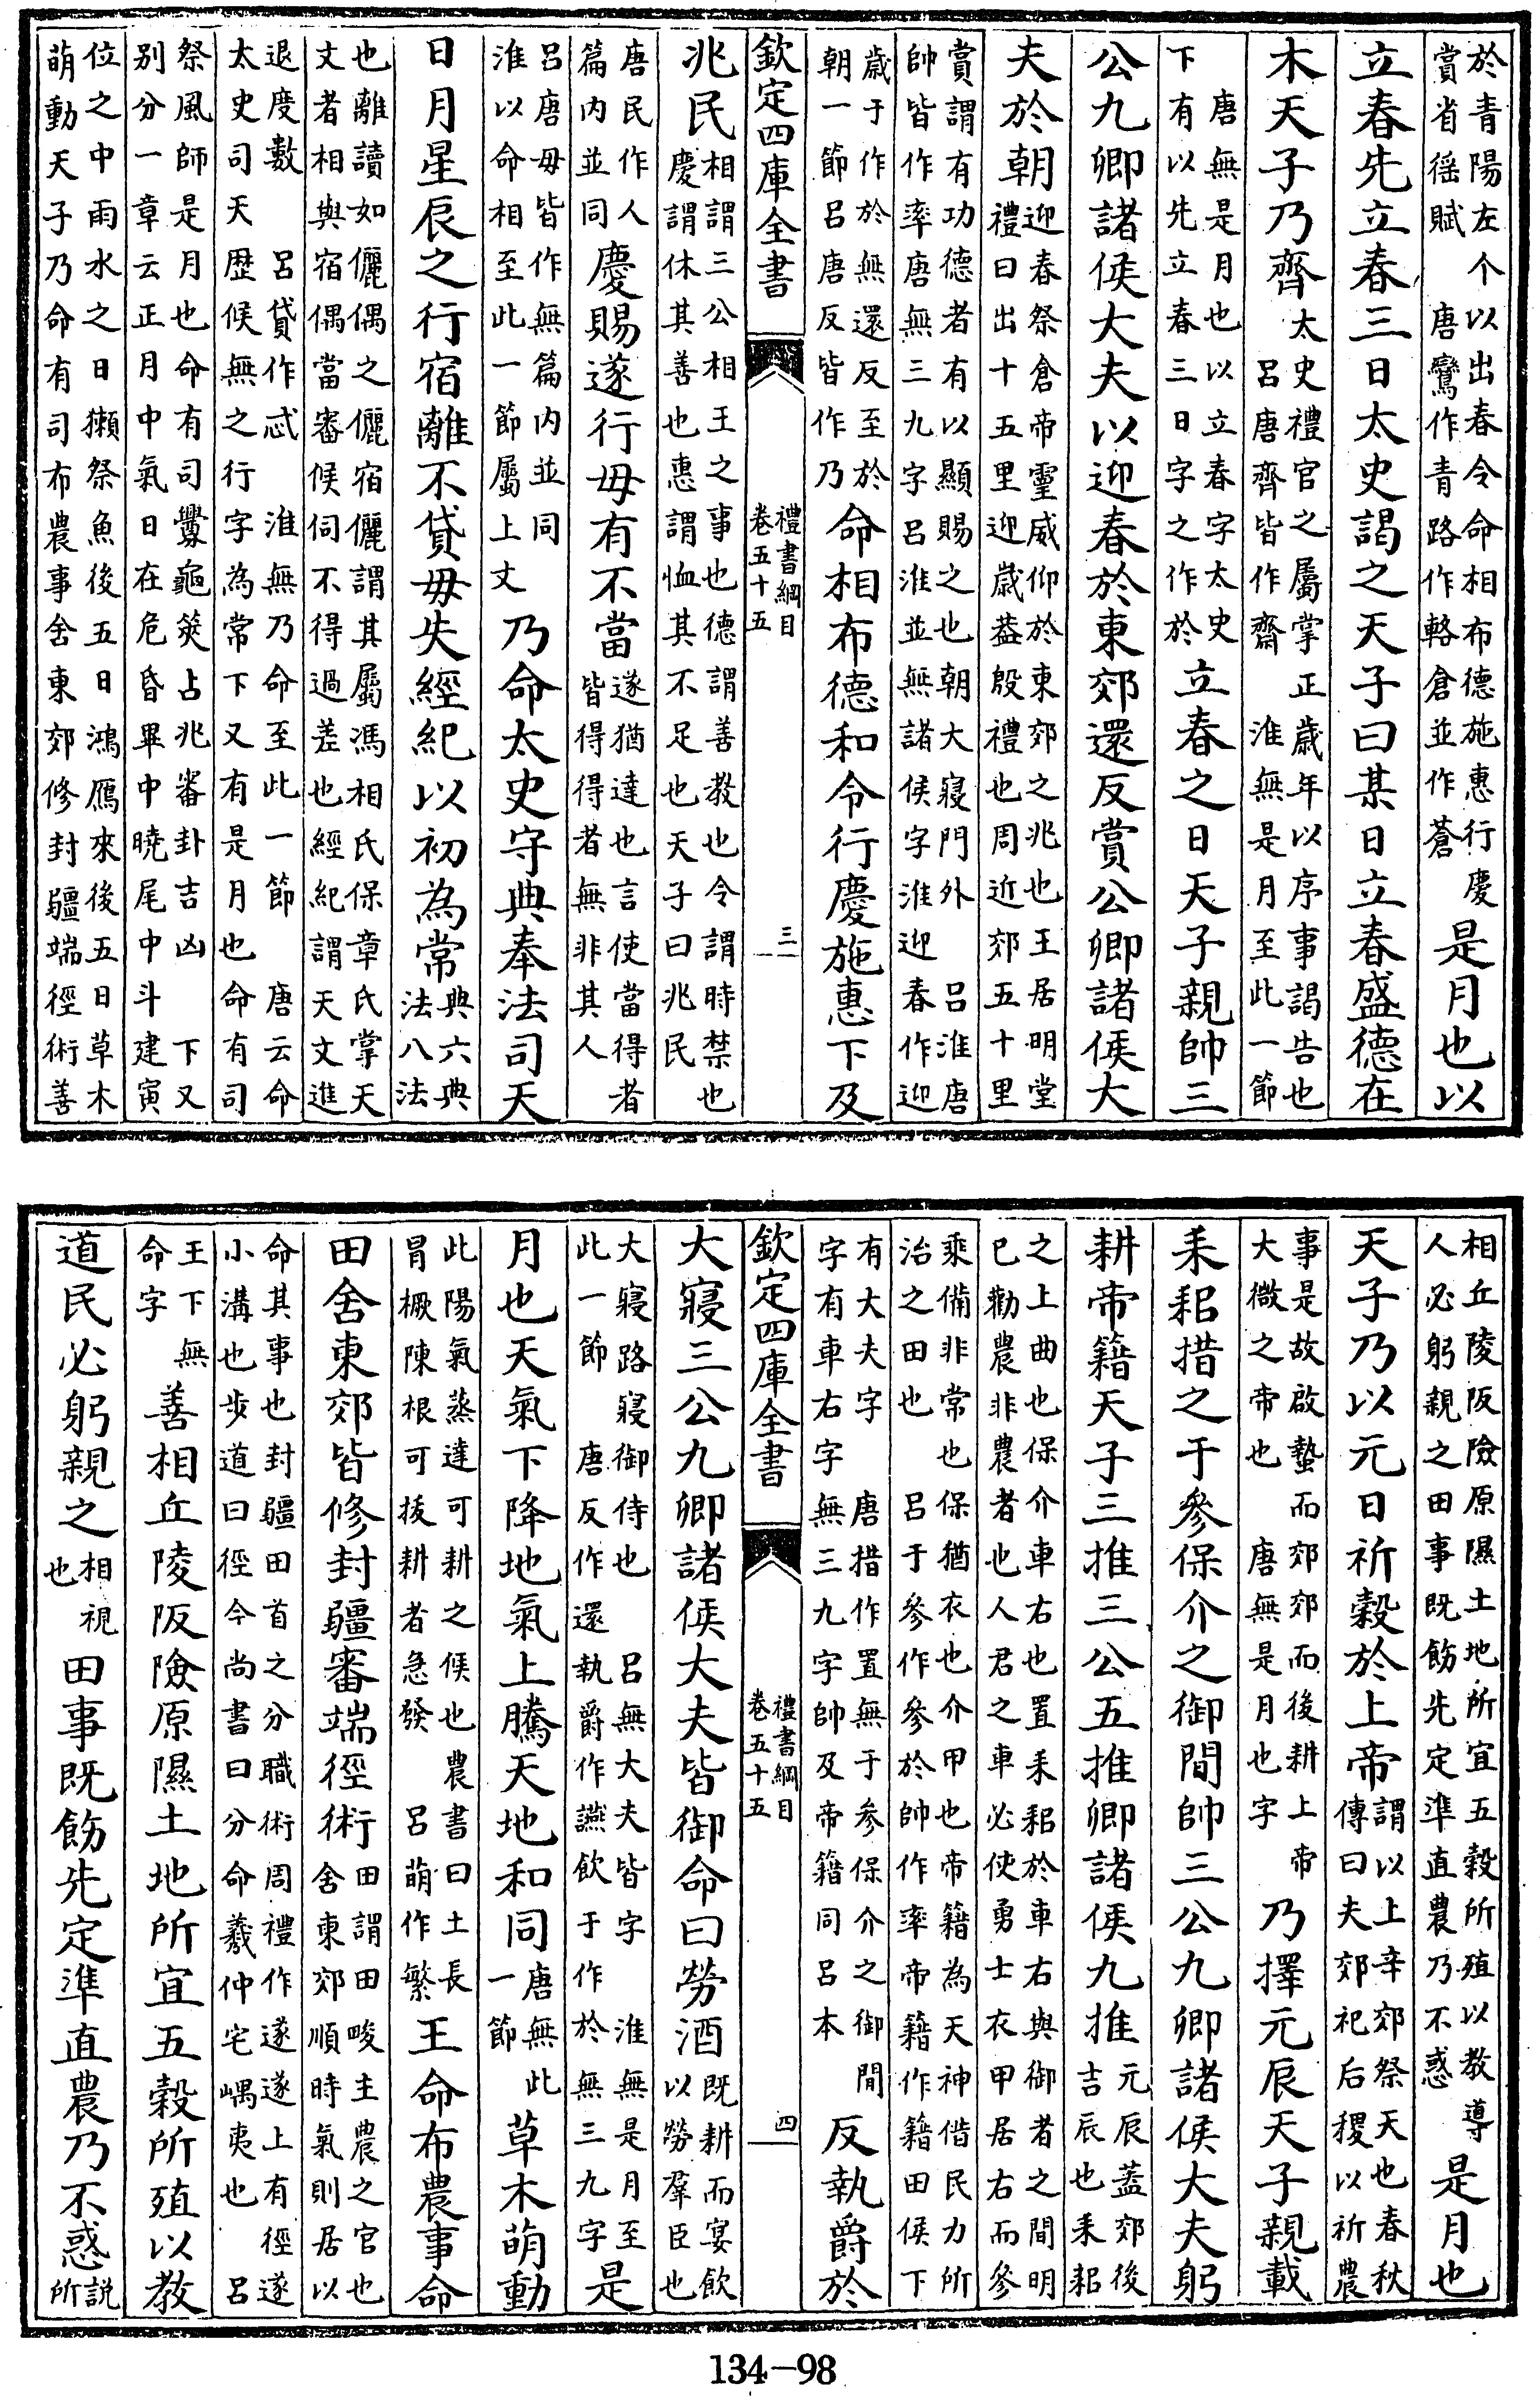 於青陽左个以出春令命相布德施惠行慶
賞省徭賦 唐鸞作青路作輅倉並作蒼
是月也以
立春先立春三日太史謁之天子曰某日立春盛德在
木天子乃齊
太史禮官之屬掌正歲年以序事謁告也
呂唐齊皆作齋 淮無是月至此一節
唐無是月也以立春字太史
下有以先立春三日字之作於
立春之日天子親帥三
公九卿諸侯大夫以迎春於東郊還反賞公卿諸侯大
夫於朝
迎春祭倉帝靈威仰於東郊之兆也王居明堂
禮曰出十五里迎歲葢殷禮也周近郊五十里
賞謂有功德者有以顯賜之也朝大寢門外 呂淮唐
帥皆作率唐無三九字呂淮並無諸侯字淮迎春作迎
歲于作於無還反至於
朝一節呂唐反皆作乃
命相布德和令行慶施惠下及
欽定四庫全書 禮書綱目 卷五十五 三
兆民
相謂三公相王之事也德謂善教也令謂時禁也
慶謂休其善也惠謂恤其不足也天子曰兆民
唐民作人
篇内並同
慶賜遂行毋有不當
遂猶達也言使當得者
皆得得者無非其人
呂唐毋皆作無篇内並同
淮以命相至此一節屬上文
乃命太史守典奉法司天
日月星辰之行宿離不貸毋失經紀以初為常
典六典
法八法
也離讀如儷偶之儷宿儷謂其屬馮相氏保章氏掌天
文者相與宿偶當審候伺不得過差也經紀謂天文進
退度數 呂貸作忒 淮無乃命至此一節 唐云命
太史司天歴候無之行字為常下又有是月也命有司
祭風師是月也命有司釁龜筴占兆審卦吉凶 下又
别分一章云正月中氣日在危昏畢中曉尾中斗建寅
位之中雨水之日獺祭魚後五日鴻鴈來後五日草木
萌動天子乃命有司布農事舍東郊修封疆端徑術善
相丘陵阪險原隰土地所宜五穀所殖以教導
人必躬親之田事既飭先定準直農乃不惑
是月也
天子乃以元日祈穀於上帝
謂以上辛郊祭天也春秋
傳曰夫郊祀后稷以祈農
事是故啟蟄而郊郊而後耕上帝
大微之帝也 唐無是月也字
乃擇元辰天子親載
耒耜措之于參保介之御間帥三公九卿諸侯大夫躬
耕帝籍天子三推三公五推卿諸侯九推
元辰葢郊後
吉辰也耒耜
之上曲也保介車右也置耒耜於車右與御者之間明
已勸農非農者也人君之車必使勇士衣甲居右而參
乘備非常也保猶衣也介甲也帝籍為天神借民力所
治之田也 呂于參作參於帥作率帝籍作籍田侯下
有大夫字 唐措作置無于參保介之御間
字有車右字無三九字帥及帝籍同呂本
反執爵於
欽定四庫全書 禮書綱目 卷五十五 四
大寢三公九卿諸侯大夫皆御命曰勞酒
既耕而宴飲
以勞羣臣也
大寢路寢御侍也 呂無大夫皆字 淮無是月至
此一節 唐反作還執爵作讌飲于作於無三九字
是
月也天氣下降地氣上騰天地和同
唐無此
一節
草木萌動
此陽氣蒸達可耕之候也農書曰土長
冒橛陳根可拔耕者急發 呂萌作繁
王命布農事命
田舍東郊皆修封疆審端徑術
田謂田畯主農之官也
舍東郊順時氣則居以
命其事也封疆田首之分職術周禮作遂遂上有徑遂
小溝也步道曰徑今尚書曰分命羲仲宅嵎夷也 呂
王下無
命字
善相丘陵阪險原隰土地所宜五穀所殖以教
道民必躬親之
相視
也
田事既飭先定準直農乃不惑
説
所
134-98